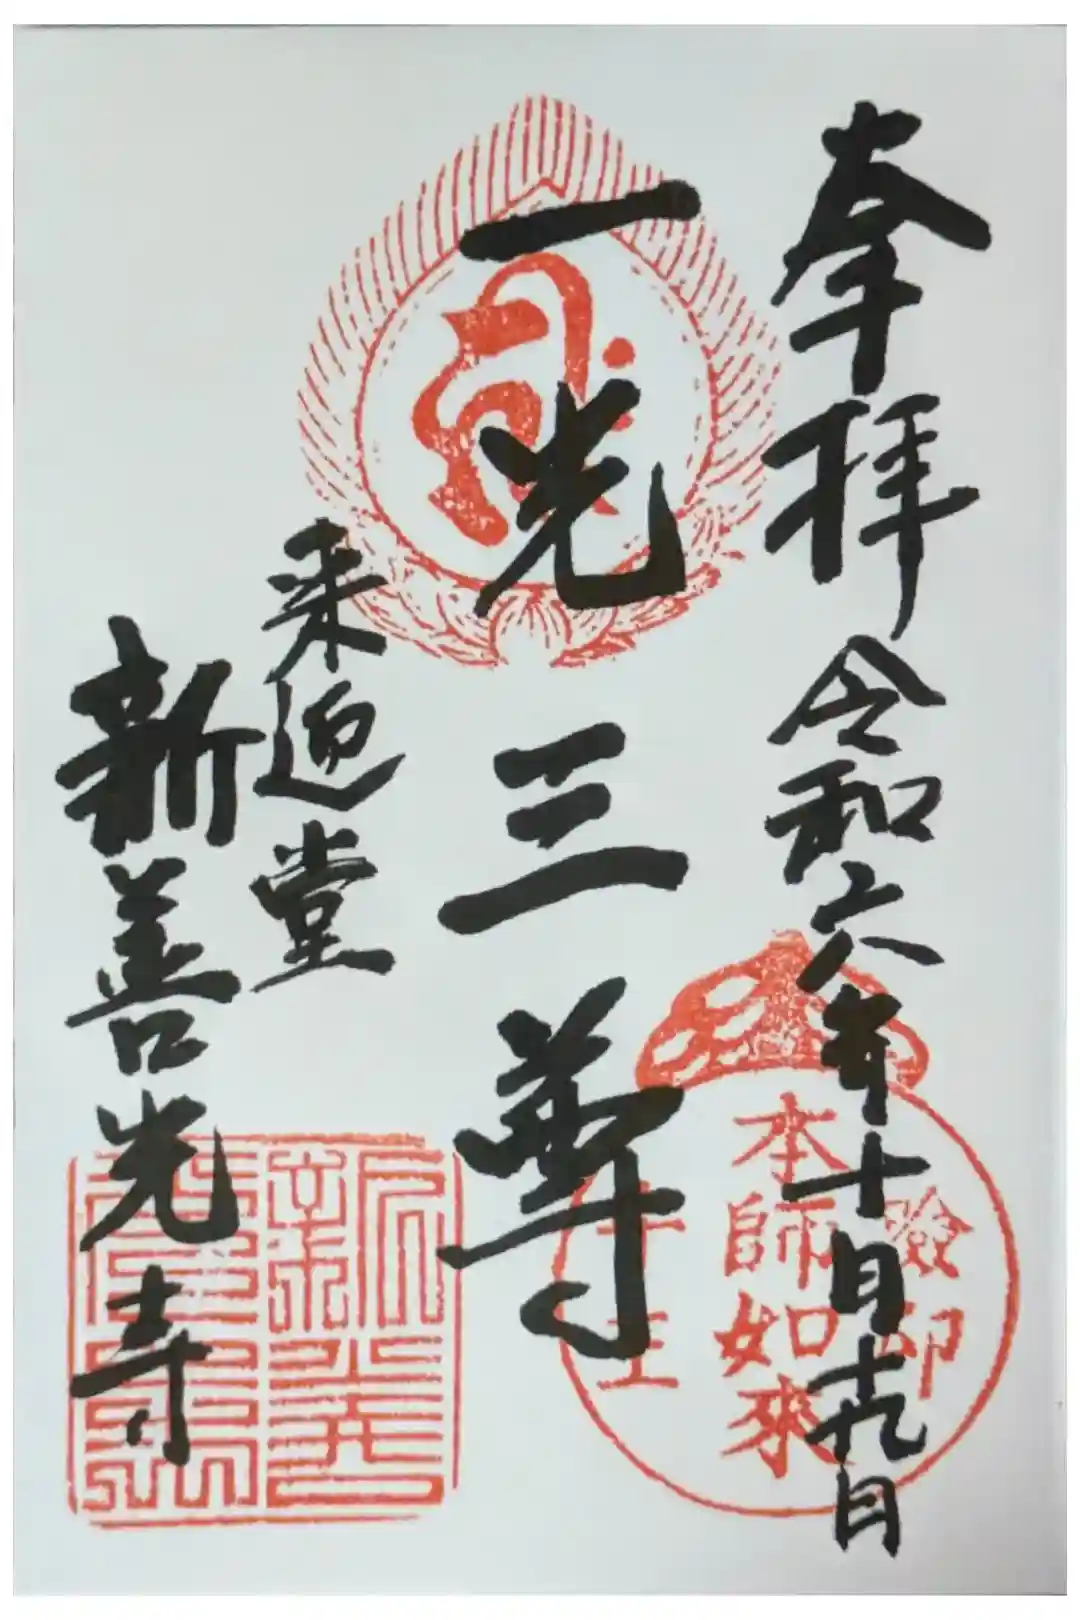 奉拝 令和六年十月十九日
一光三尊
来迎堂
新善光寺
本師如來